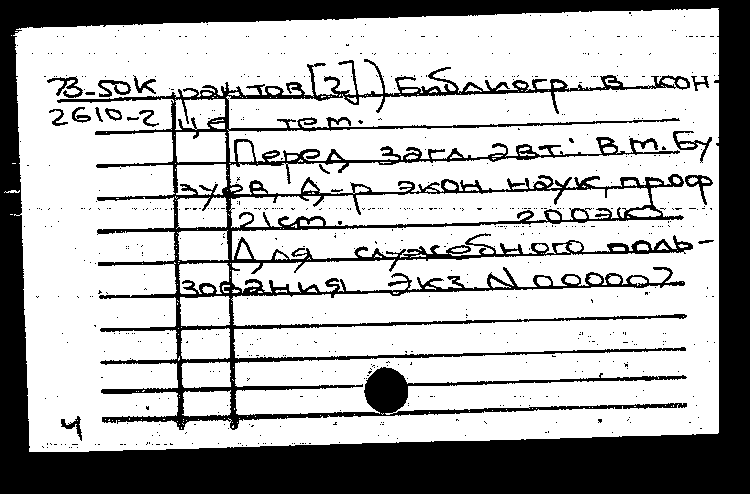 73-50К рантов [2].) Библиогр. в кон-
2610-2 це тем.
Перед загл. авт.: В.М. Бу-
зуев, Д-р экон. наук, проф
21 см. 200 экз.
Для служебного поль-
зования. Экз N 000007
4